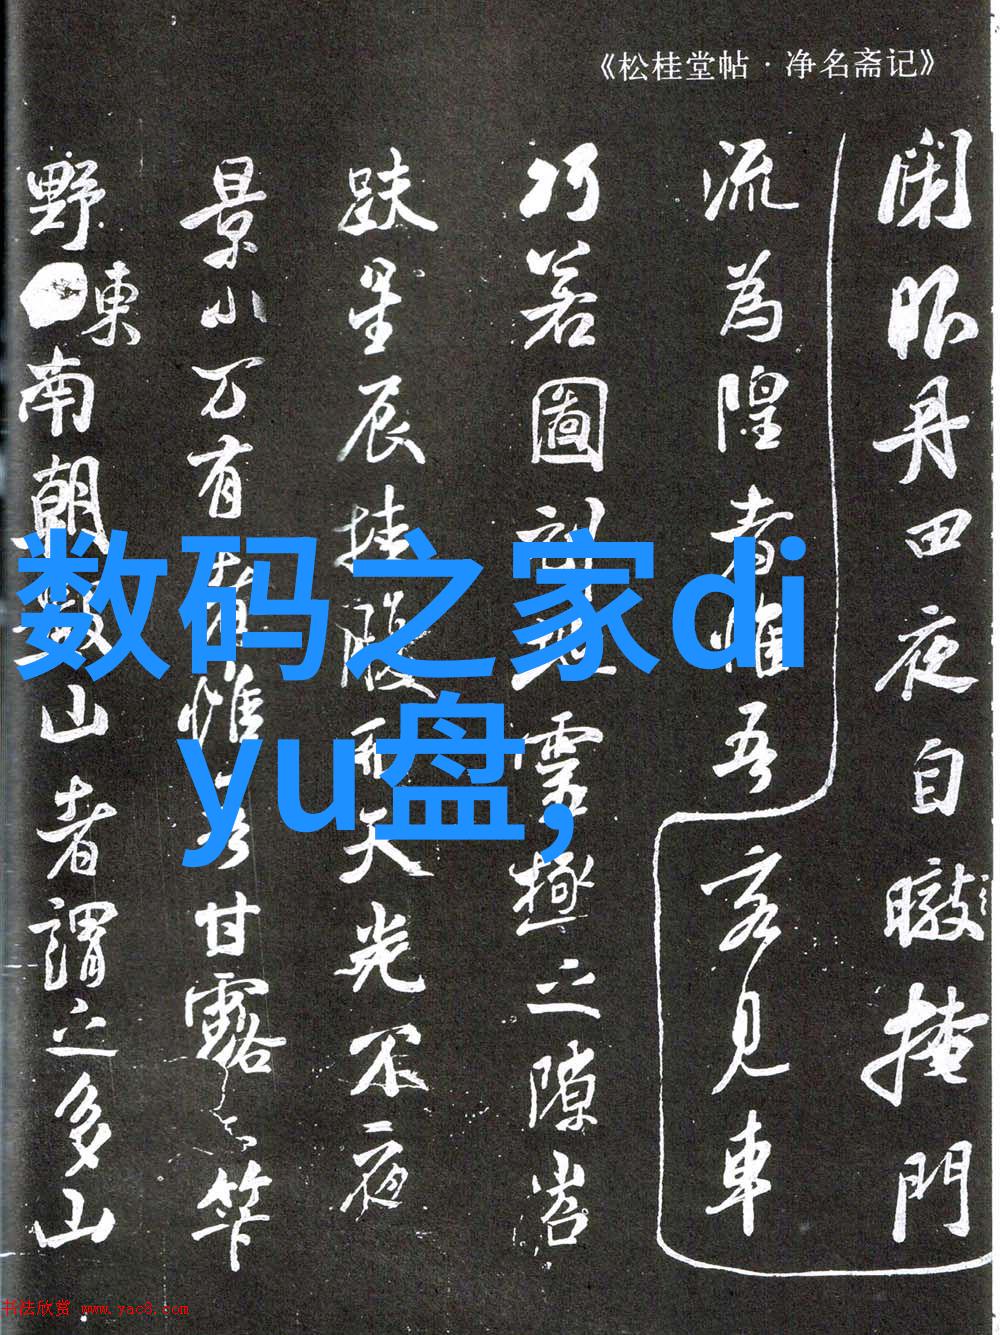 《松桂堂帖·净名斋记》
闲眠丹田夜自暾掩門
流為隍者惟吾客見車
巧若圖刻雲極之隙岩
趺星辰挂殿天光不夜
景小万有者惟吾甘露
野東南朝数山者謂之多山
数码之家di
yu盘,
书法欣赏 www.yac8.com